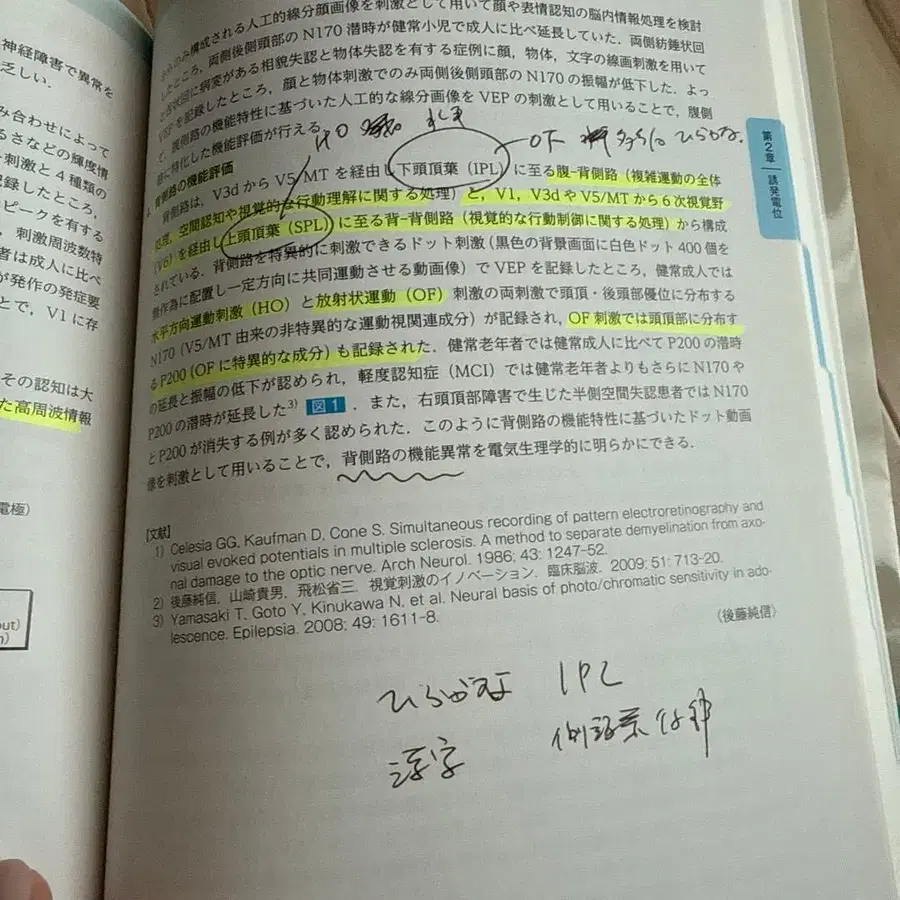 神経障害で異常を
乏しい．
み合わせによって
るさなどの輝度情
刺激と4種類の
記録したところ，
ピークを有する
，刺激周波数特
者は成人に比べ
が発作の発症要
とで，V1に存
その認知は大
た高周波情報
電極）
のみ構成される人工的線分顔画像を刺激として用いて顔や表情認知の脳内情報処理を検討
したところ，両側後側頭部のN170潜時が健常小児で成人に比べ延長していた．両側紡錘状回
と舌状回に病変がある相貌失認と物体失認を有する症例に顔，物体，文字の線画刺激を用いて
VEPを記録したところ，顔と物体刺激でのみ両側後側頭部のN170の振幅が低下した．よっ
て，腹側路の機能特性に基づいた人工的な線分画像をVEPの刺激として用いることで，腹側
路に特化した機能評価が行える．
HO
OF
ひらがな．
背側路の機能評価
背側路は，V3dからV5/MTを経由し下頭頂葉（IPL）に至る腹-背側路（複雑運動の全体
処理，空間認知や視覚的な行動理解に関する処理）と，V1，V3dやV5/MTから6次視覚野
（V6）を経由し上頭頂葉（SPL）に至る背-背側路（視覚的な行動制御に関する処理）から構成
されている．背側路を特異的に刺激できるドット刺激（黒色の背景画面に白色ドット400個を
無作為に配置し一定方向に共同運動させる動画像）でVEPを記録したところ，健常成人では
水平方向運動刺激（HO）と放射状運動（OF）刺激の両刺激で頭頂・後頭部優位に分布する
N170（V5/MT由来の非特異的な運動視関連成分）が記録され，OF刺激では頭頂部に分布す
るP200（OFに特異的な成分）も記録された．健常老年者では健常成人に比べてP200の潜時
の延長と振幅の低下が認められ，軽度認知症（MCI）では健常老年者よりもさらにN170や
P200の潜時が延長した3）図1．また，右頭頂部障害で生じた半側空間失認患者ではN170
とP200が消失する例が多く認められた．このように背側路の機能特性に基づいたドット動画
像を刺激として用いることで，背側路の機能異常を電気生理学的に明らかにできる．
【文献】
1）Celesia GG, Kaufman D, Cone S. Simultaneous recording of pattern electroretinography and
visual evoked potentials in multiple sclerosis. A method to separate demyelination from axo-
nal damage to the optic nerve. Arch Neurol. 1986; 43: 1247-52.
2）後藤純信，山崎貴男，飛松省三．視覚刺激のイノベーション．臨床脳波．2009; 51: 713-20.
3）Yamasaki T, Goto Y, Kinukawa N, et al. Neural basis of photo/chromatic sensitivity in ado-
lescence. Epilepsia. 2008; 49: 1611-8.
〈後藤純信〉
ひらがな IPL
漢字
第2章
誘発電位